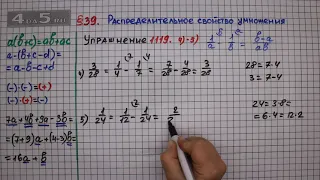 4GDZ5.RU
§39. Распределительное свойство умножения
Упражнение 1119. 4)-5)
1/a \b - 1/b \a = (b-a)/ab
a(b+c)=ab+ac
a-(b+c-d)=
=a-b-c+d
(-)·(-)=(+)
(-)·(+)=(-)
7a+4b+9a-3b=
=(7+9)a+(4-3)b=
=16a+b
4) 3/28 = 1/4 \7 - 1/7 \4 = 7/28 - 4/28 = 3/28
28=7·4
3=7-4
5) 1/24 = 1/12 \2 - 1/24 = 2/2
24=3·8=
=6·4=12·2